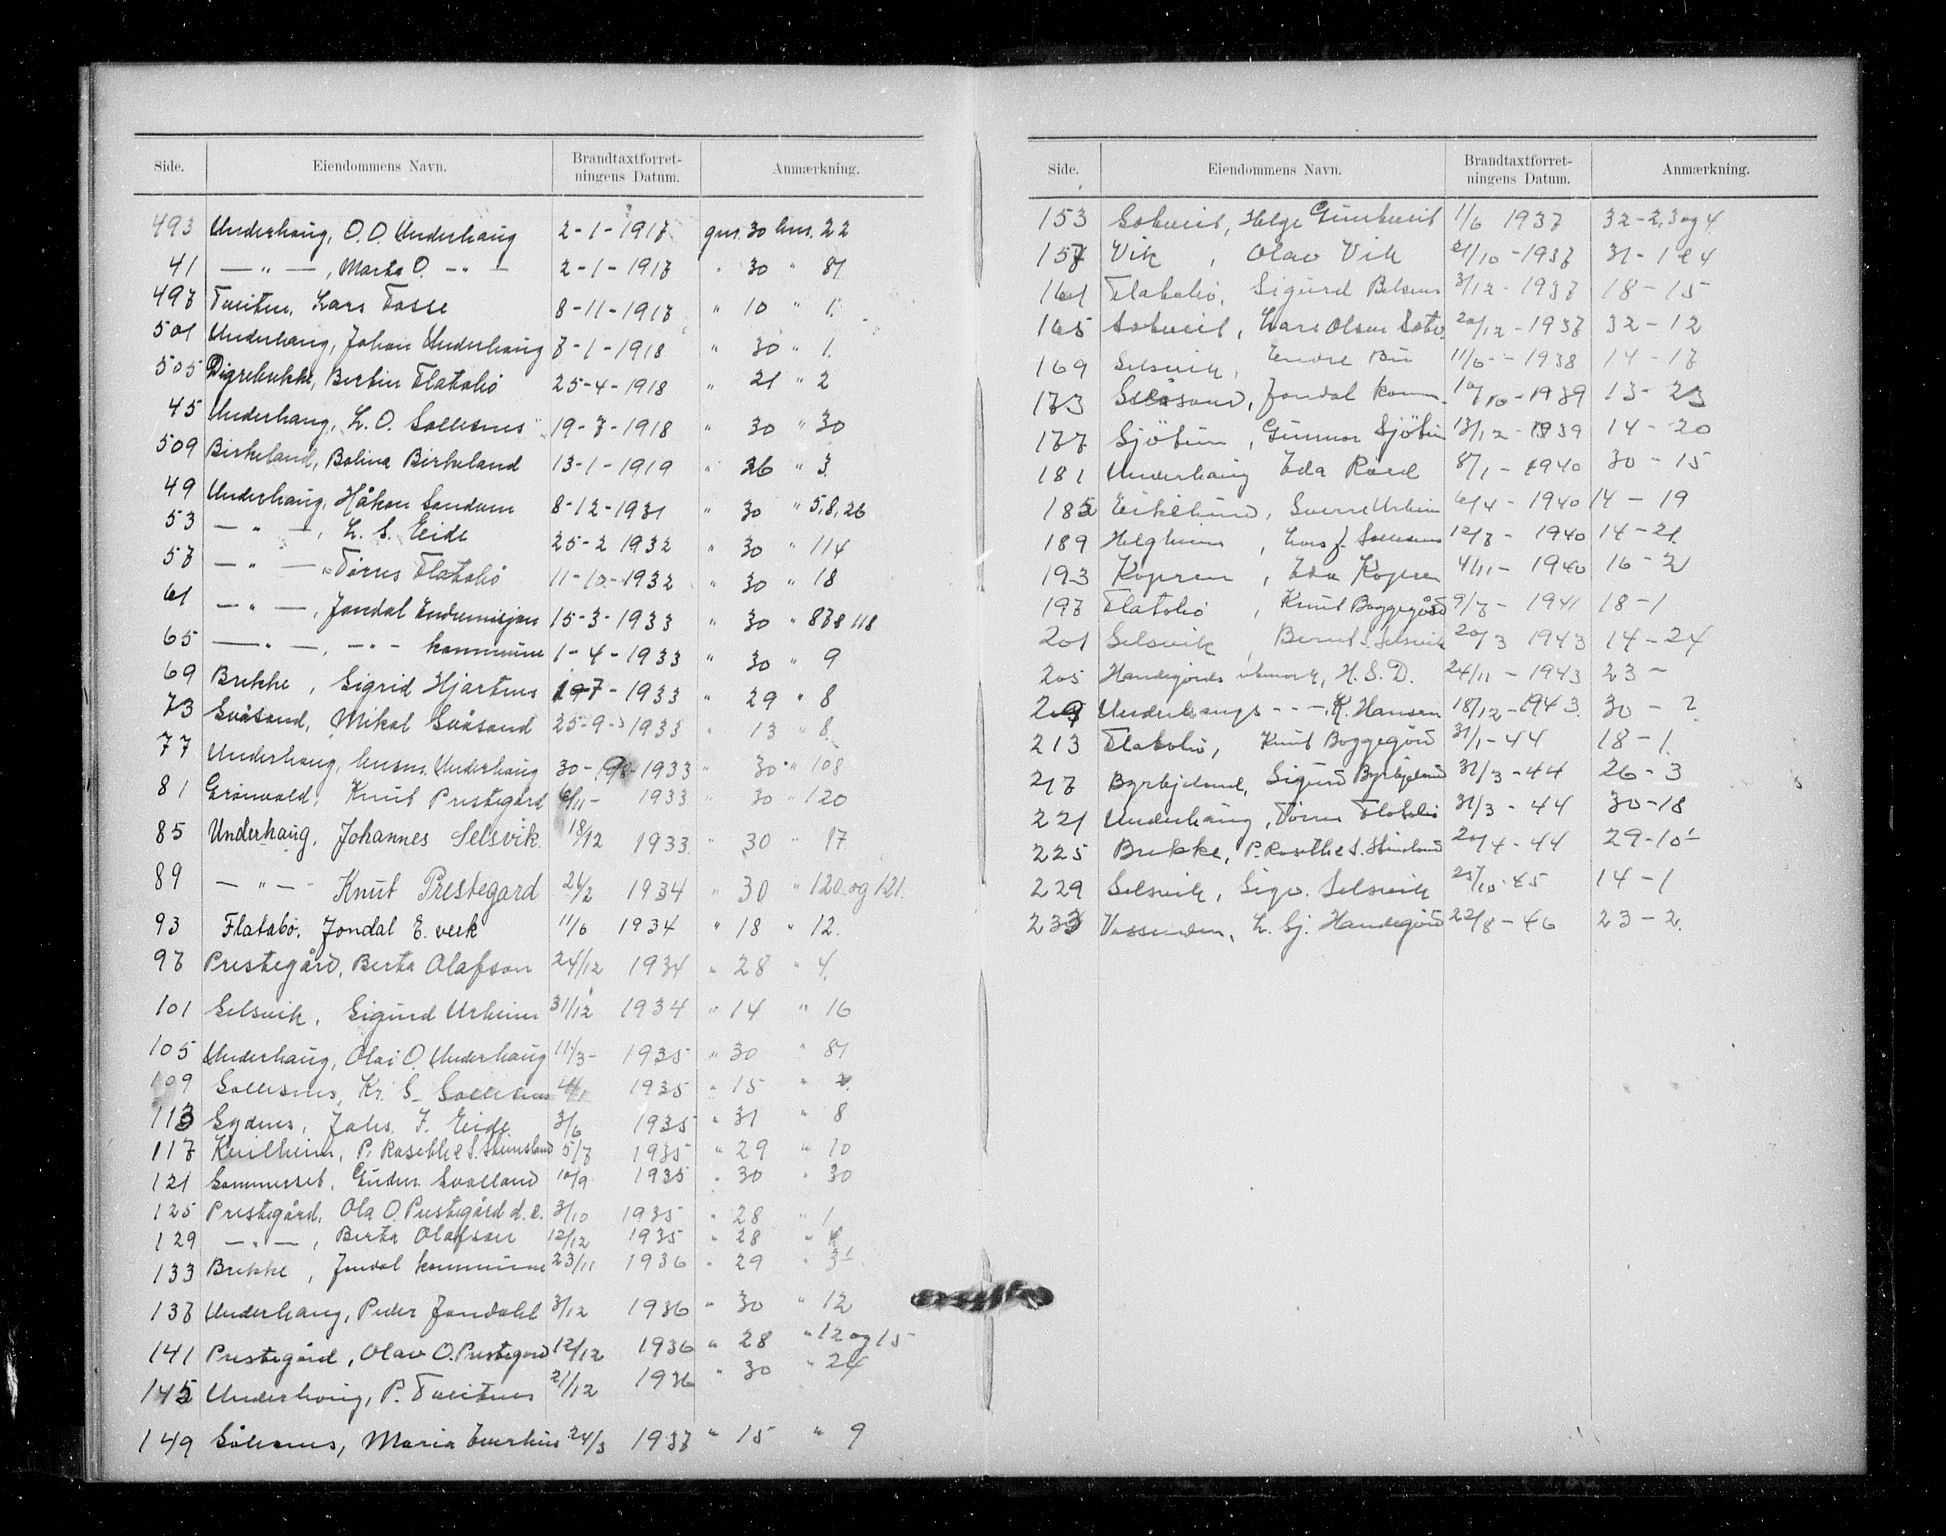 Side. Eiendommens Navn. Brandtaxtforretningens Datum. Anmærkning.
493 Underhaug, O. O. Underhaug 2-1-1917 gnr. 30 bnr. 22
41 —"—, Marta O. -"- 2-1-1917 " 30 " 81
497 Tveiten, Lars Fosse 8-11-1917 " 10 " 1.
501 Underhaug, Johan Underhaug 7-1-1918 " 30 " 1.
505 Digrebrekke, Bertin Flatabø 25-4-1918 " 21 " 2
45 Underhaug, L. O. Sollesnes 19-7-1918 " 30 " 30
509 Birkeland, Bolina Birkeland 13-1-1919 " 26 " 3
49 Underhaug, Håkon Sandven 8-12-1931 " 30 " 5,8,26
53 —"—, L. S. Eide 25-2 1932 " 30 " 114
57 —"— Tørres Flatabø 11-10-1932 " 30 " 18
61 —"—, Jondal Indremisjon 15-3-1933 " 30 " 87 & 118
65 —"—, -"- kommune 1-4-1933 " 30 " 9
69 Brekke, Sigrid Hjartnes 19-7-1933 " 29 " 8
73 Svåsand, Mikal Svåsand 25-9-1933 " 13 " 8
77 Underhaug, Underhaug 30- -1933 " 30 " 108
81 Grønvold, Knut Prestegård 6/11- 1933 " 30 " 120
85 Underhaug, Johannes Selsvik 18/12 1933 " 30 " 17
89 —"— Knut Prestegard 21/2 1934 " 30 " 120 og 121.
93 Flatabø, Jondal E. verk 11/6 1934 " 18 " 12.
97 Prestegård, Berta Olafson 24/12 1934 " 28 " 4.
101 Selsvik, Sigurd Urheim 31/12 1934 " 14 " 16
105 Underhaug, Olai O. Underhaug 11/3- 1935 " 30 " 81
109 Sollesnes, Kr. S. Sollesnes 1935 " 15 " 2.
113 Sydnes, Johs. J. Eide 3/6 1935 " 31 " 8
117 Kvilheim, P. Raseth & S. Steinsland 5/7 1935 " 29 " 10
121 Sommerset, Guden Svolland 10/9 1935 " 30 " 30
125 Prestegård, Ola O. Prestegård d.e. 3/10 1935 " 28 " 1
129 —"—, Berta Olafson 12/12 1935 " 28 " 4
133 Brekke, Jondal kommune 23/11 1936 " 29 " 31
137 Underhaug, Peder Jondahl 3/12 1936 " 30 " 12
141 Prestegård, Olav O. Prestegård 12/12 1936 " 28 " 12 og 15
145 Underhaug, P. Tveitnes 21/12 1936 " 30 " 24
149 Sollesnes, Maria 24/3 1937 " 15 " 9
Side. Eiendommens Navn. Brandtaxtforretningens Datum. Anmærkning.
153 Solveit, Helge 1/6 1937 32-2,3 og 4
157 Vik, Olav Vik 21/10-1937 31-1 & 4
161 Flatabø, Sigurd Belsnes 3/12-1937 18-15
165 Solveit, Lars Olsen 20/12-1937 32-12
169 Selsvik, Endre Bu 11/6-1938 14-17
173 Svåsand, Jondal komm. 10/10-1939 13-23
177 Sjötun, Gunnar Sjötun 13/12-1939 14-20
181 Underhaug Eda Roed 8/1-1940 30-15
185 Eikelund, Sverre Urheim 6/4-1940 14-19
189 Helgheim, Lars J. Sollesnes 12/7-1940 14-21
193 Kopren, Eda Kopren 4/11-1940 16-2
197 Flatabø, Knut Boggegård 9/7-1941 18-1
201 Selsvik, Bernt S. Selsvik 20/3 1943 14-24
205 Handegårds utmark, H. S. D. 24/11-1943 23-
209 Underhaugs -"-, K. Hansen 18/12-1943 30-?
213 Flatabø, Knut Boggegård 31/1-44 18-1
217 Byrkjeland, Sigurd Byrkjeland 31/3-44 26-3
221 Underhaug, Tørres Flatabø 31/3-44 30-18
225 Brekke, P. Raseth & S. Steinsland 20/4-44 29-10
229 Selsvik, Sigv. Selsvik 25/10-45 14-1
233 Vassenden, L. Sj. Handegård 22/8-46 23-2